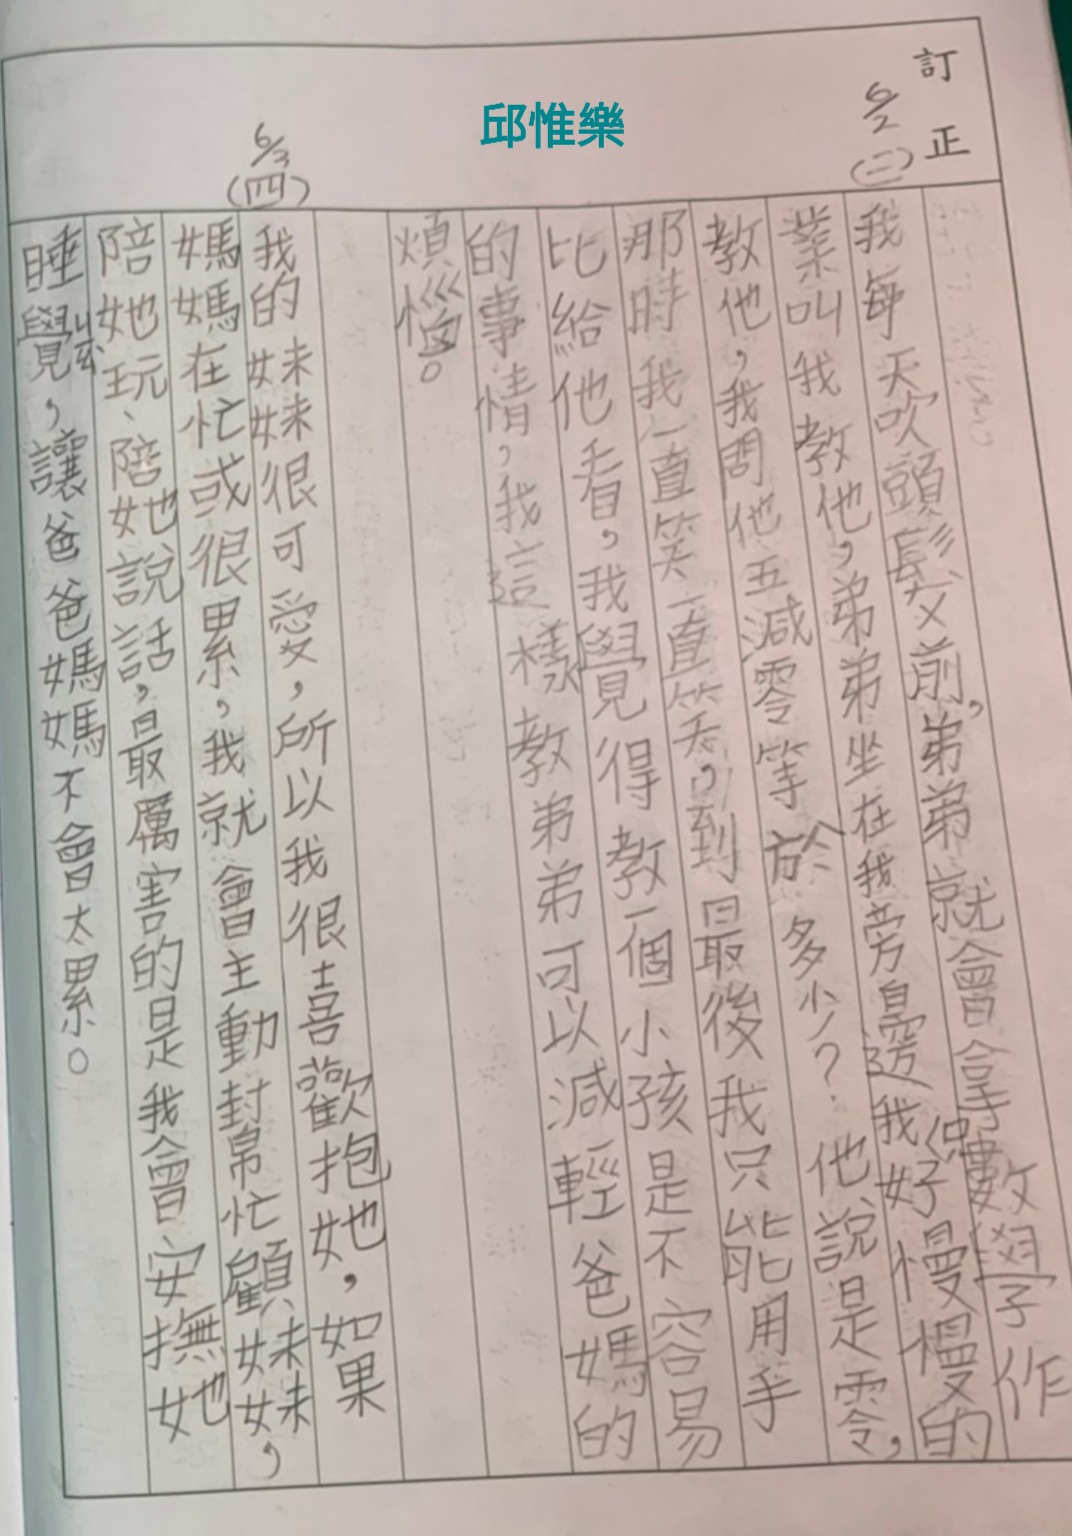 訂正
邱惟樂
6/2
(二)
我每天吹頭髮前,弟弟就會拿數學作
業叫我教他,弟弟坐在我旁邊我很好慢慢的
教他,我問他五減零等於多少?他說是零,
那時我一直笑一直笑,到最後我只能用手
比給他看,我覺得教一個小孩是不容易
的事情,我這樣教弟弟可以減輕爸媽的
煩惱。
6/3
(四)
我的妹妹很可愛,所以我很喜歡抱她,如果
媽媽在忙或很累,我就會主動幫忙顧妹妹,
陪她玩、陪她說話,最厲害的是我會安撫她
睡覺,讓爸爸媽媽不會太累。